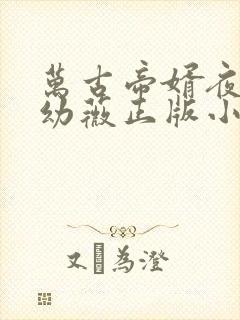 萬古帝婿夜
幼薇正版小
又 為澄